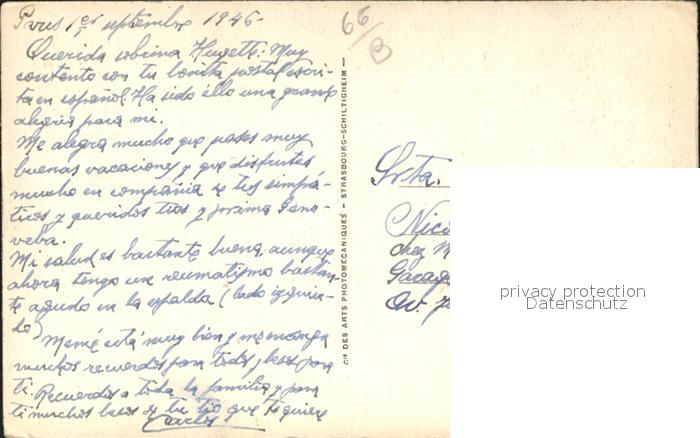 Paris 1er septembre 1946-
Querida sobrina Huguette: Muy
contento con tu bonita postal escri-
ta en español. Ha sido éllo una grande
alegria para mi.
Me alegra mucho que pases muy
buenas vacaciones y que disfrutes
mucho en compañia de tus simpá-
ticos y queridos tios y prima Geno-
veba.
Mi salud es bastante buena, aunque
ahora tengo un reumatismo bastan-
te agudo en la espalda (lado izquier-
do)
Memé está muy bien y me encarga
muchos recuerdos para todos y besos para
ti. Recuerdos a toda la familia y para
ti muchos besos de tu tio que te quiere
Carlos
66/B
Cie DES ARTS PHOTOMÉCANIQUES - STRASBOURG-SCHILTIGHEIM -
Srta.
chez M
Av.
privacy protection
Datenschutz